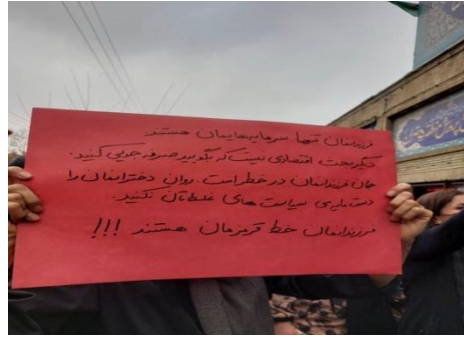 فرزندانمان تنها سرمایه‌هایمان هستند
دیگر بحث اقتصادی نیست که بگویید صرفه جویی کنید.
جان فرزندانمان در خطر است. روان دخترانمان را
دست مایه‌ی سیاست های غلطتان نکنید.
فرزندانمان خط قرمزمان هستند !!!